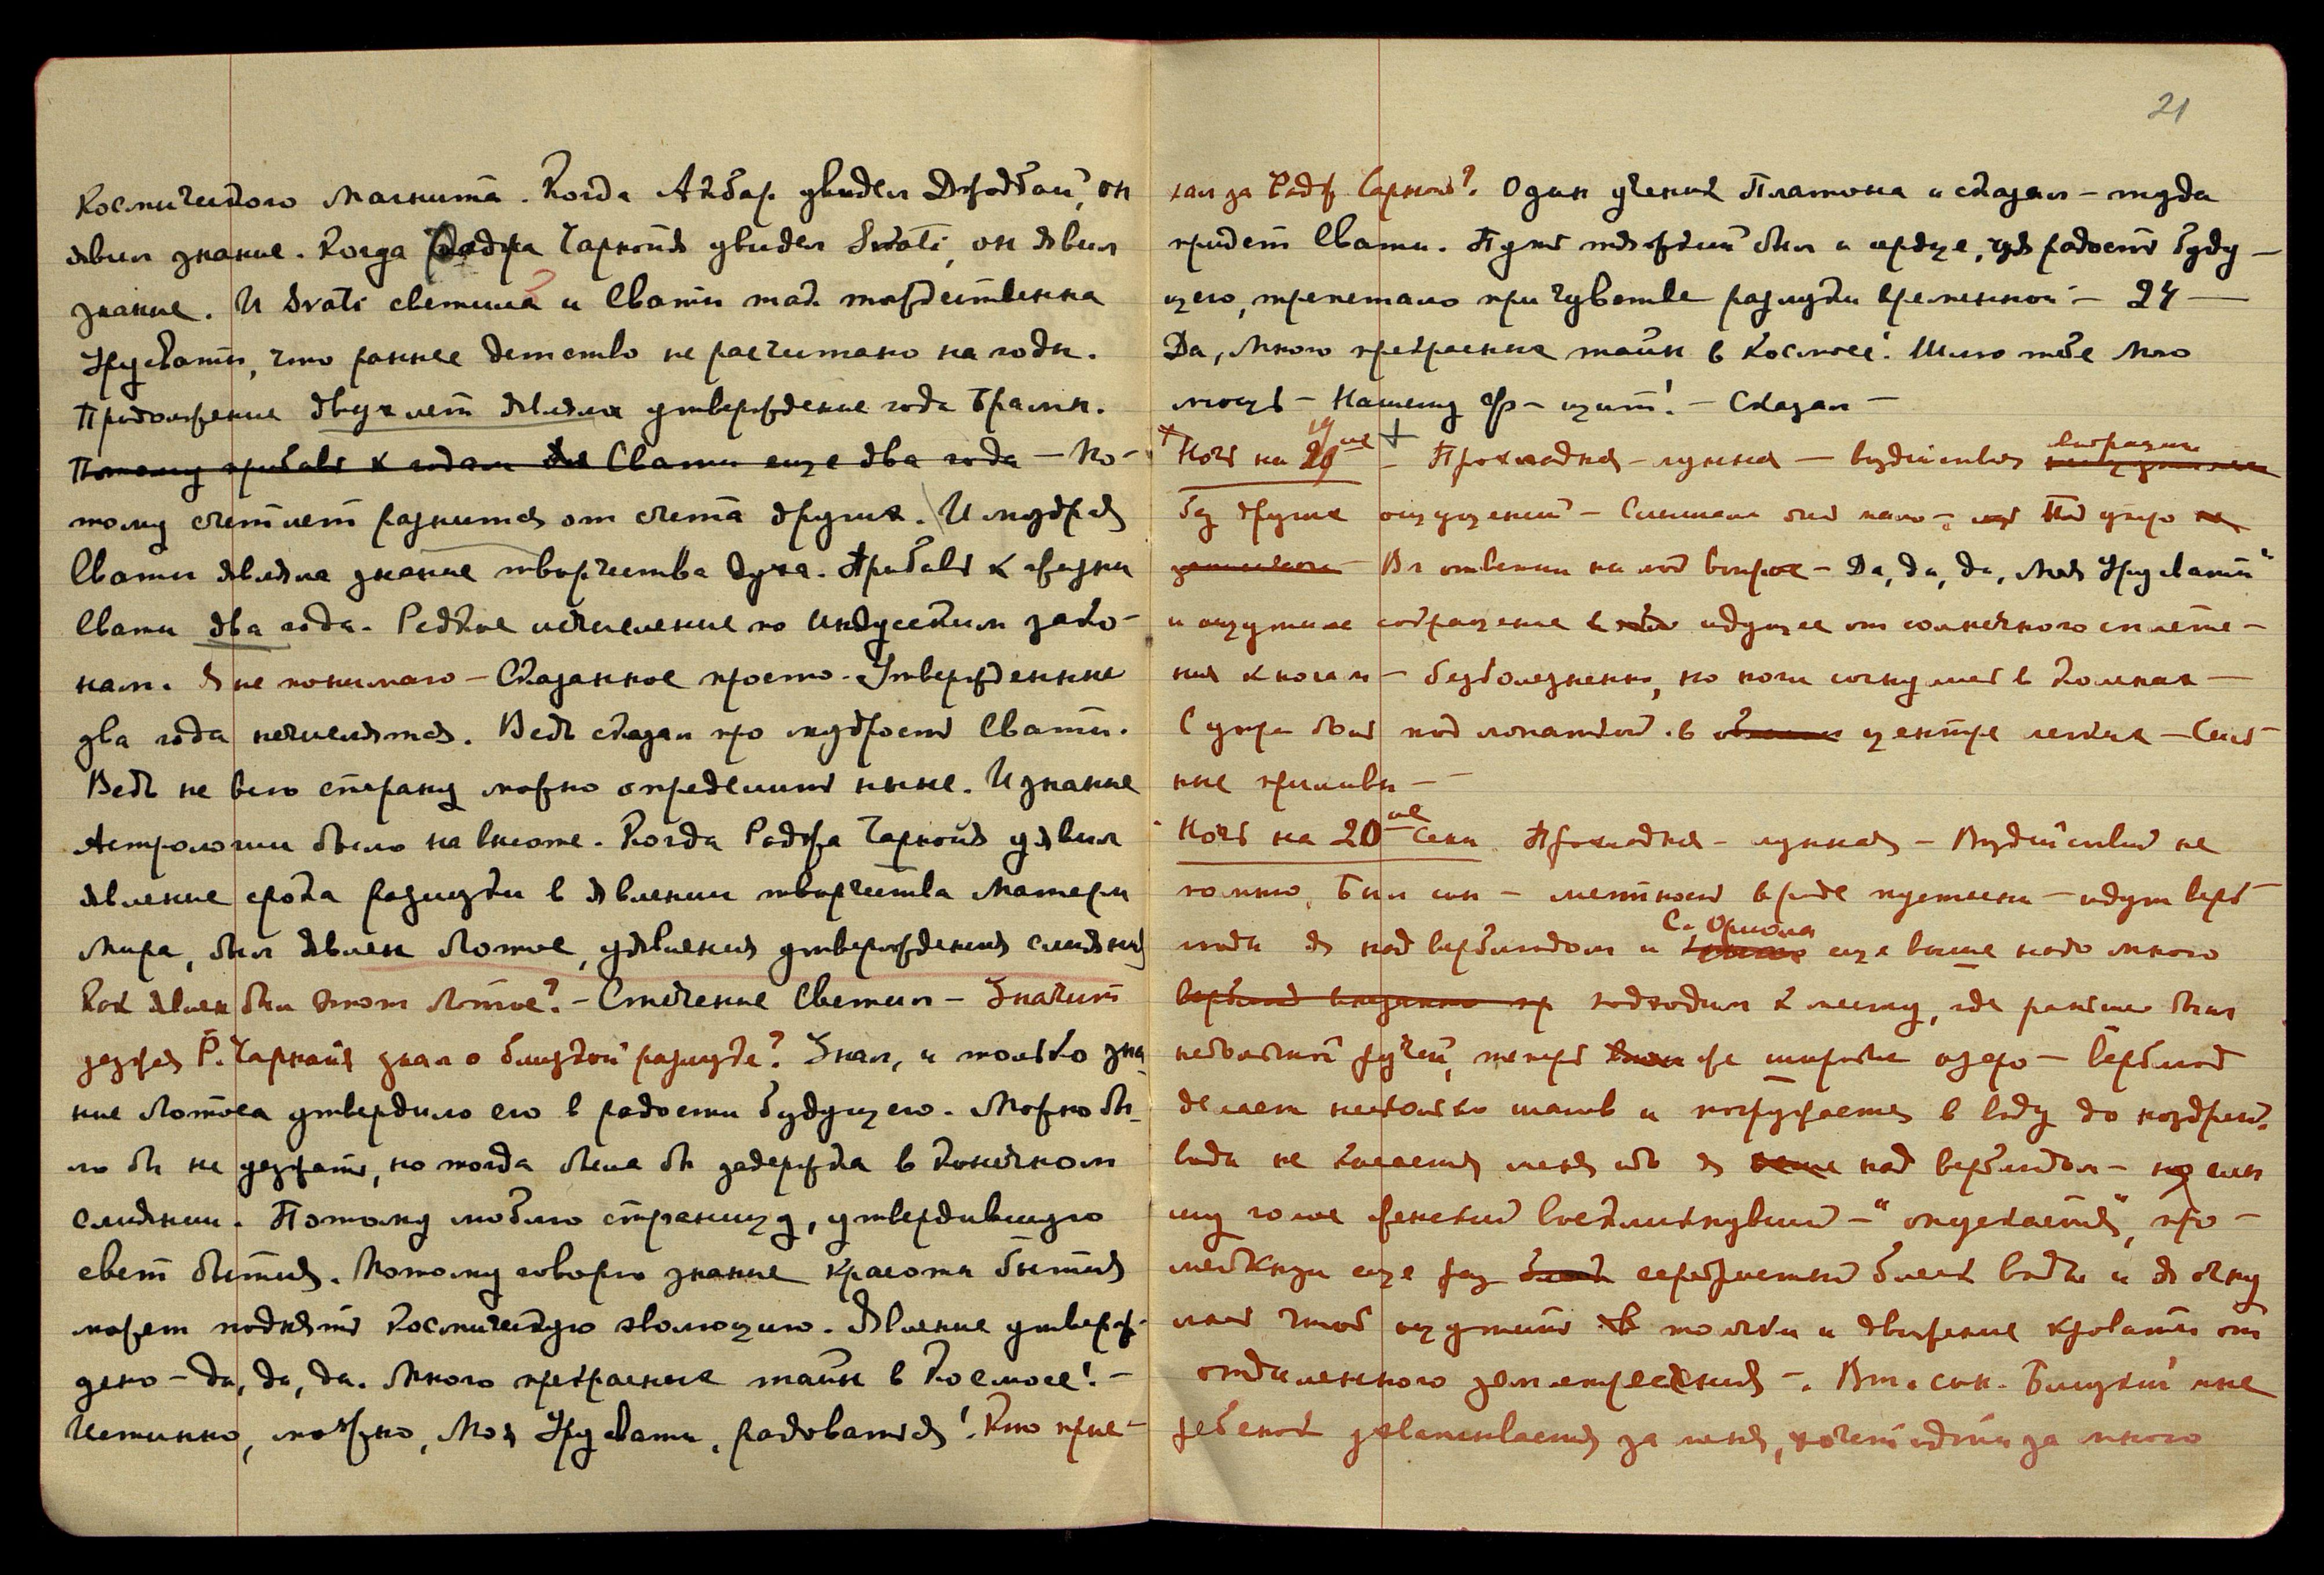 Космического Магнита. Когда Акбар увидел Джодбай, он
явил знание. Когда Раджа Чарнойя увидел Svati, он явил
знание. И Svati светила и Свати так тождественна
Урусвати, что раннее детство не расчитано на годы.
Продолжение двух лет являлся утверждение года Брамы.
Потому прибавь к годам Свати еще два года — По-
тому счет лет разнится от счета других. И мудрая
Свати являла знание творчества духа. Прибавь к жизни
Свати два года. Редкое исчисление по Индусским зако-
нам. Я не понимаю — Сказанное просто. Утвержденные
два года исчислятся. Ведь сказал про мудрость Свати.
Ведь не всю страну можно определить ныне. И знание
Астрологии было на высоте. Когда Раджа Чарнойя уявил
явление срока разлуки в явлении творчества Матери
Мира, был явлен Лотос, уявления утверждения слияния
Как явлен был этот Лотос? — Стечение Светил — Значит
уезжая Р. Чарнойя знал о близкой разлуке? Знал, и только зна
ние Лотоса утвердило его в радости будущего. Можно бы-
ло бы не уезжать, но тогда была бы задержка в конечном
слиянии. Потому люблю страницу, утвердившую
свет бытия. Потому говорю знание красоты бытия
может поднять космическую эволюцию. Явление утверж-
дено — да, да, да. Много прекрасных тайн в Космосе! —
Истинно, можно, Моя Урусвати, радоваться! Кто прие-
21
хал за Радж Чарной? Один ученик Платона и сказал — туда
придет Свати. Путь тяжкий был и сердце, чуя радость буду —
щего, трепетало при чувстве разлуки временной — 24 —
Да, много прекрасных тайн в Космосе! Шлю тебе мою
мощь — Нашему Ф — щит! — Сказал —
Ночь на 19 ое — Прохладная — лунная — воздействия вибрации
без других ощущений — Слышала был мало — Под утро
Вл ответил на мой вопрос — Да, да, да, Моя Урусвати"
и ощутила сокращение идущее от солнечного сплете-
ния к ногам — безболезненно, но ноги согнулись в коленах —
С утра боль под лопаткой в центре легких — Силь-
ные приливы —
Ночь на 20 ое Сент. Прохладная — лунная — Воздействий не
помню, Был сон — местность вроде пустыни — идут верб-
люды я над верблюдом и С. Ориола еще выше надо мною
верблюд внезапно пр подходим к месту, где раньше был
небольшой ручей, теперь же широкое озеро — Верблюд
делает несколько шагов и погружается в воду до ноздрей.
вода не касается меня ибо я над верблюдом — но слы
шу голос женский воскликнувший — "опускается", про —
мелькнул еще раз серебристый блеск воды и я очну
лась чтоб ощутить толчки и движение кровати от
отдаленного землетрясения —. Вт. сон. Близкий мне
ребенок уцепливается за меня, хочет идти за мною